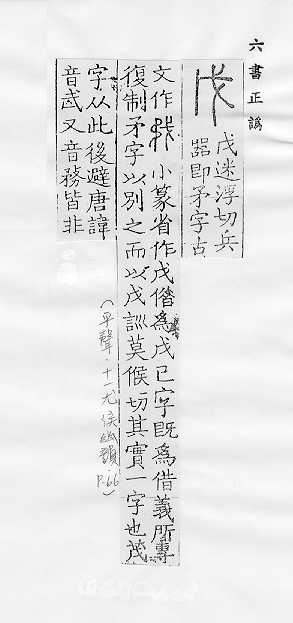 六書正譌
戊
戊迷浮切兵
器即矛字古
文作小篆省作戊借為戊已字既為借義所專
復制矛字以別之而以戊訓莫候切其實一字也茂
字从此後避唐諱
音武又音務皆非
(平聲・十一尤侯幽韻 P.66)